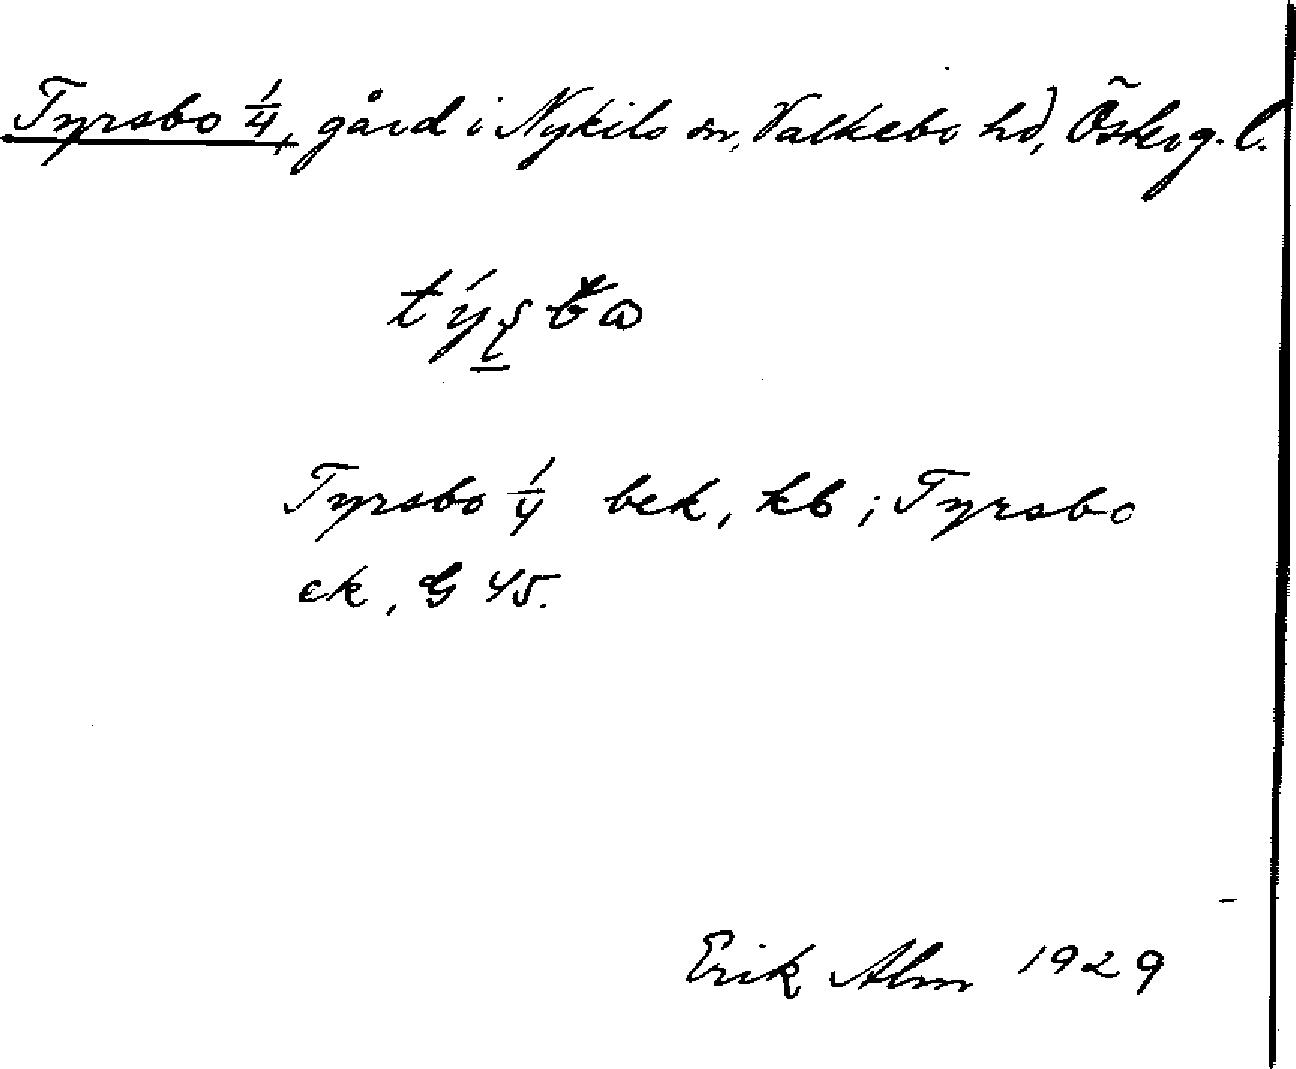 Tyrsbo 1/4, gård i Nykils sn, Valkebo hd, Östg. l.
Tyrsbo 1/4 bek, kb; Tyrsbo
ek, G 45.
Erik Alm 1929